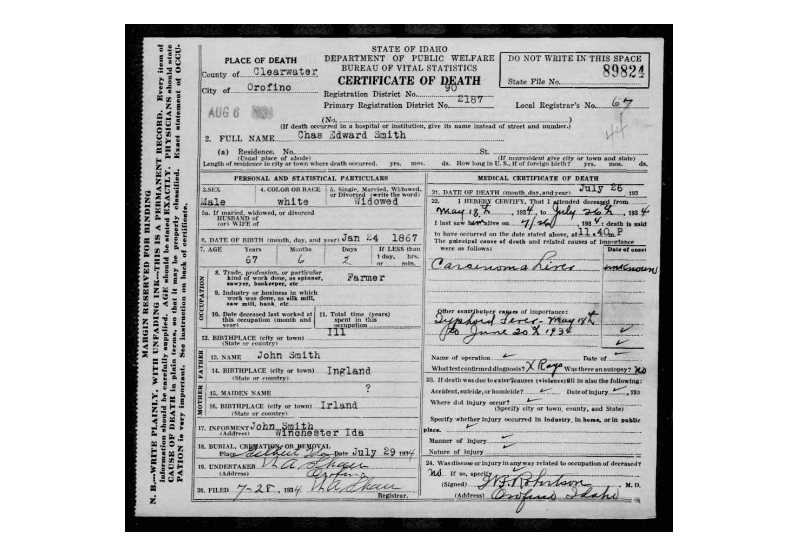 STATE OF IDAHO
DEPARTMENT OF PUBLIC WELFARE
BUREAU OF VITAL STATISTICS
CERTIFICATE OF DEATH
PLACE OF DEATH
County of Clearwater
City of Orofino
AUG 6
Registration District No. 90
Primary Registration District No. 2187
DO NOT WRITE IN THIS SPACE
State File No. 89824
Local Registrar's No. 67
44
(No. )
(If death occurred in a hospital or institution, give its name instead of street and number.)
2. FULL NAME Chas Edward Smith
(a) Residence. No. St.
(Usual place of abode) (If nonresident give city or town and state)
Length of residence in city or town where death occurred. yrs. mos. ds. How long in U. S., if of foreign birth? yrs. mos. ds.
PERSONAL AND STATISTICAL PARTICULARS
3. SEX 4. COLOR OR RACE 5. Single, Married, Widowed, or Divorced (write the word)
Male white Widowed
5a. If married, widowed, or divorced
HUSBAND of
(or) WIFE of
6. DATE OF BIRTH (month, day, and year) Jan 24 1867
7. AGE Years Months Days If LESS than
1 day, hrs.
or min.
67 6 2
OCCUPATION
8. Trade, profession, or particular
kind of work done, as spinner,
sawyer, bookkeeper, etc.
Farmer
9. Industry or business in which
work was done, as silk mill,
saw mill, bank, etc.
10. Date deceased last worked at
this occupation (month and
year)
11. Total time (years)
spent in this
occupation
12. BIRTHPLACE (city or town) Ill
(State or country)
FATHER
13. NAME John Smith
14. BIRTHPLACE (city or town) Ingland
(State or country)
MOTHER
15. MAIDEN NAME ?
16. BIRTHPLACE (city or town) Irland
(State or country)
17. INFORMENT John Smith
(Address) Winchester Ida
18. BURIAL, CREMATION, OR REMOVAL
Place Ida Date July 29 1934
19. UNDERTAKER
(Address) Orofino
20. FILED 7-28, 1934
Registrar.
MEDICAL CERTIFICATE OF DEATH
21. DATE OF DEATH (month, day, and year) July 26 193
22. I HEREBY CERTIFY, That I attended deceased from
May 18th, 1934, to July 26th, 1934
I last saw him alive on 7/26, 1934; death is said
to have occurred on the date stated above, at 11.40 P
The principal cause of death and related causes of importance
were as follows:
Date of onset
Carcinoma Liver unknown
Other contributory causes of importance:
Typhoid Fever - May 18th
to June 20th 1934
Name of operation Date of
What test confirmed diagnosis? X Rays Was there an autopsy? No
23. If death was due to external causes (violence) fill in also the following:
Accident, suicide, or homicide? Date of injury , 193
Where did injury occur?
(Specify city or town, county, and State)
Specify whether injury occurred in industry, in home, or in public
place.
Manner of injury
Nature of injury
24. Was disease or injury in any way related to occupation of deceased?
No If so, specify
(Signed) Robertson, M. D.
(Address) Orofino Idaho
MARGIN RESERVED FOR BINDING
N. B.—WRITE PLAINLY, WITH UNFADING INK—THIS IS A PERMANENT RECORD. Every item of
information should be carefully supplied. AGE should be stated EXACTLY. PHYSICIANS should state
CAUSE OF DEATH in plain terms, so that it may be properly classified. Exact statement of OCCU-
PATION is very important. See instruction on back of certificate.